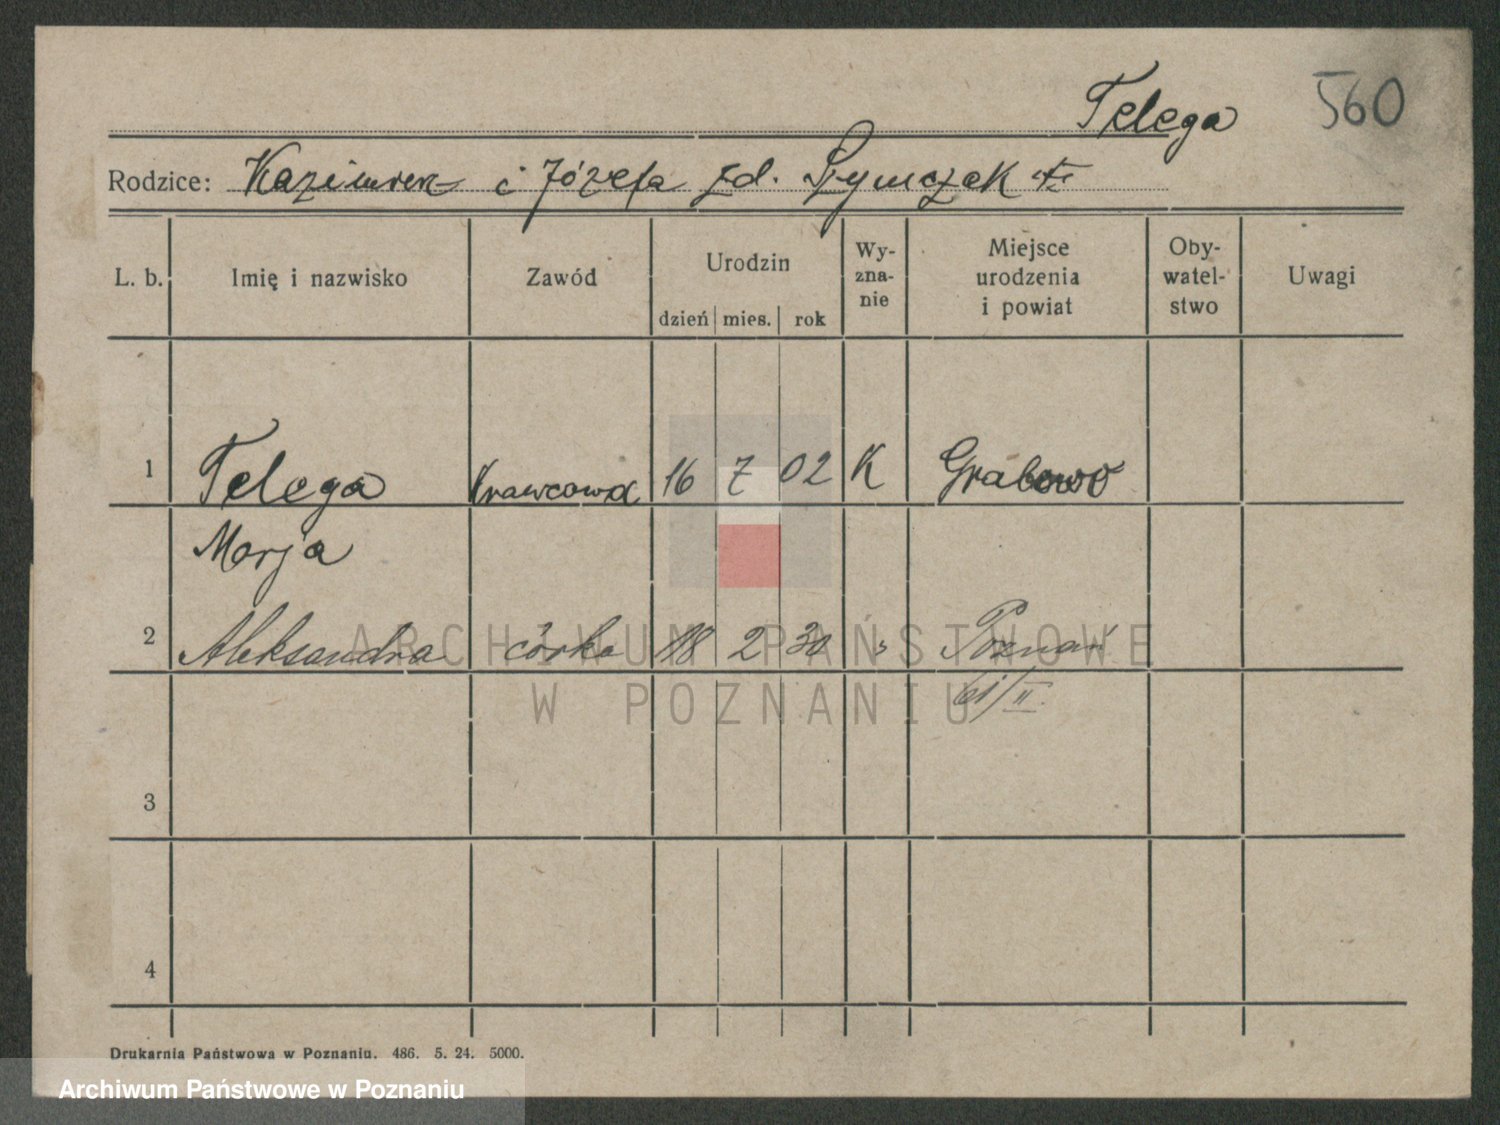 Telega 560
Rodzice: Kazimierz i Józefa zd. Szymczak
L. b. Imię i nazwisko Zawód Urodzin dzień mies. rok Wy-zna-nie Miejsce urodzenia i powiat Oby-watel-stwo Uwagi
1 Telega Krawcowa 16 7 02 K Grabowo
Marja
2 Aleksandra córka 18 2 30 " Poznań
3
4
ARCHIWUM PAŃSTWOWE
W POZNANIU
Drukarnia Państwowa w Poznaniu. 486. 5. 24. 5000.
Archiwum Państwowe w Poznaniu